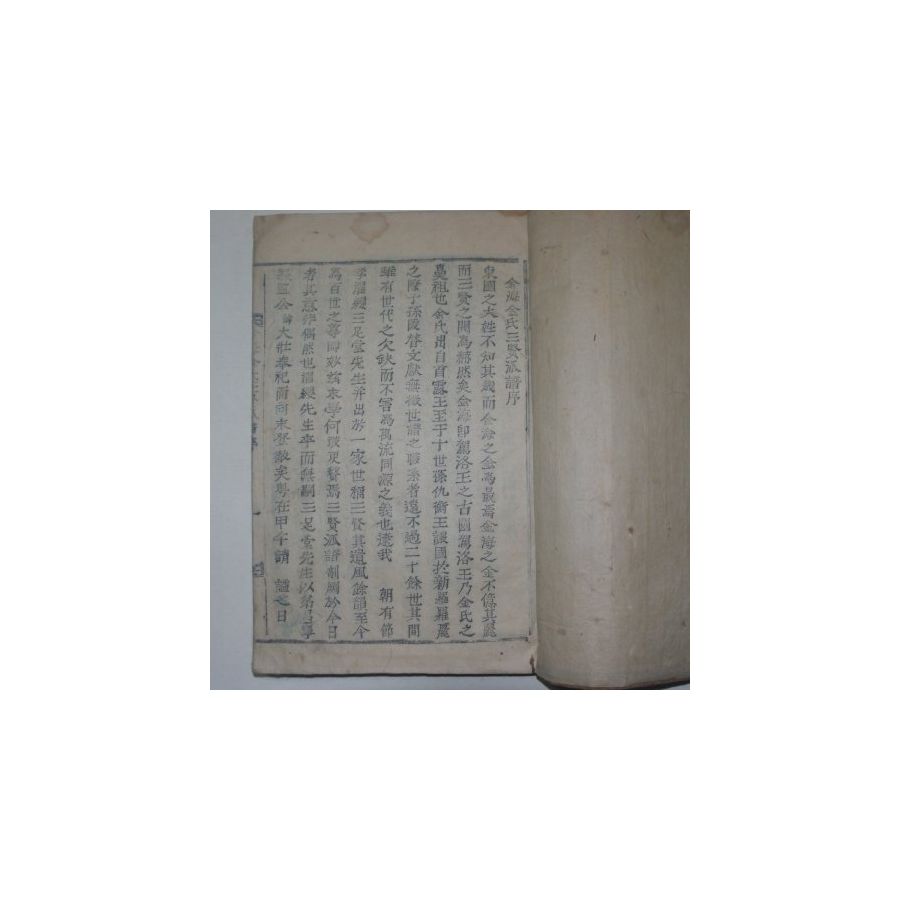 金海金氏三賢派譜序
東國之大姓不知其幾而金海之金爲最焉金海之金不億其麗
而三賢之閥爲赫然矣金海卽駕洛王之古國駕洛王乃金氏之
鼻祖也金氏出自首露王至于十世孫仇衡王讓國於新羅羅麗
之際子孫文獻無徵世譜之聯系者遠不過二十餘世其間
雖有世代之欠缺而不害爲萬流同源之義也逮我 朝有節
孝濯纓三足堂先生幷出於一家世稱三賢其遺風餘韻至今
爲百世之尊師末學何敢更贅焉三賢派譜刱獨於今日
者其意非偶然也濯纓先生卒而無嗣三足堂先生以第
公大壯奉祀而尙未登徹矣粤在甲午請 謚之日